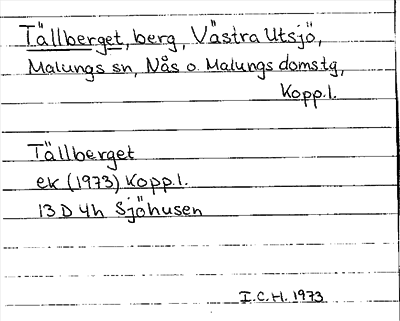 Tällberget, berg, Västra Utsjö,
Malungs sn, Nås o. Malungs domstg,
Kopp.l.
Tällberget
ek (1973) Kopp.l.
13 D 4h Sjöhusen
I.C.H. 1973